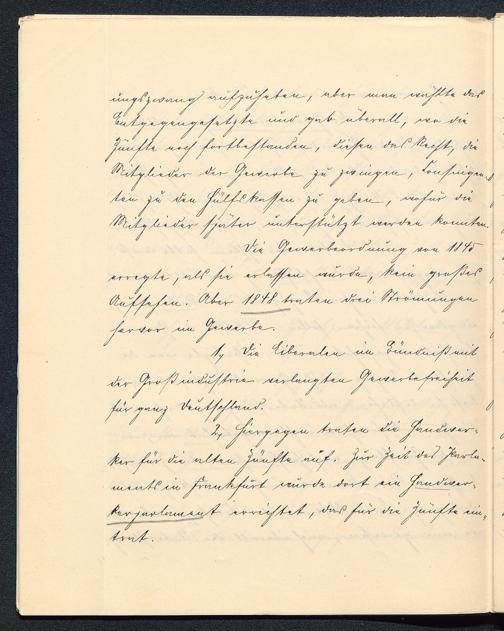 ungszwang aufzuheben, aber man wählte das
Entgegengesetzte und gab überall, wo die
Zünfte noch fortbestanden, diesen das Recht, die
Mitglieder der Gewerbe zu zwingen, Contingen-
ten zu den Hülfskassen zu geben, wofür die
Mitglieder später unterstützt werden konnten.
Die Gewerbeordnung von 1845
erregte, als sie erlassen wurde, kein großes
Aufsehen. Aber 1848 traten drei Strömungen
hervor im Gewerbe.
1, Die Liberalen im Bündniß mit
der Großindustrie verlangten Gewerbefreiheit
für ganz Deutschland.
2, Hiergegen traten die Handwer-
ker für die alten Zünfte auf. Zur Zeit des Parla-
ments in Frankfurt wurde dort ein Handwer-
kerparlament errichtet, das für die Zünfte ein-
trat.